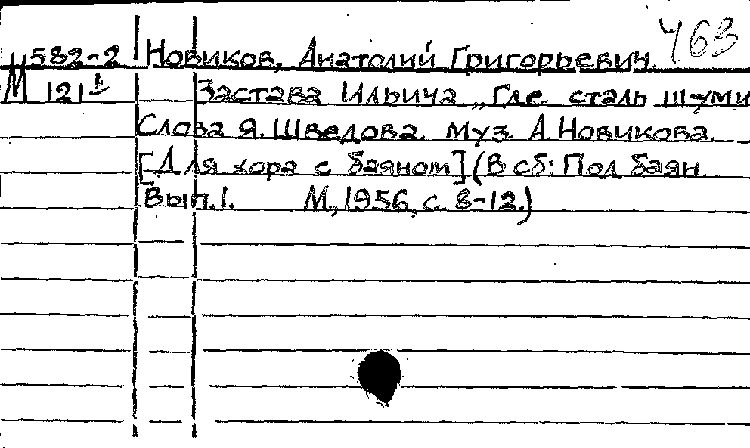 463
М 582-2 Новиков, Анатолий Григорьевич.
М 121 Застава Ильича „Где сталь шуми
Слова Я. Шведова. Муз. А. Новикова.
[Для хора с баяном] (В сб: Под баян
Вып. 1. М., 1956, с. 8-12.)